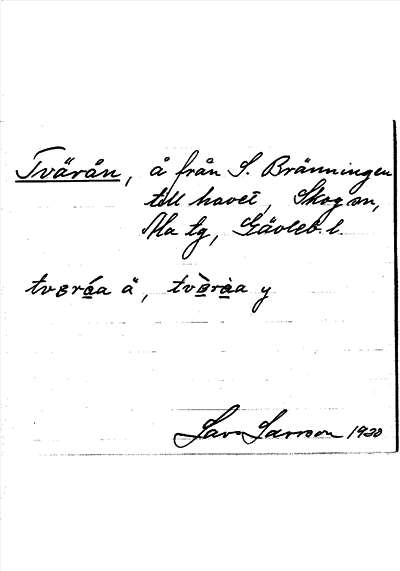 Tvärån, å från S. Bränningen
till havet, Skog sn,
Ala tg, Gävleb. l.
tvɛráa ä, tvàràa y
Lars Larsson 1930